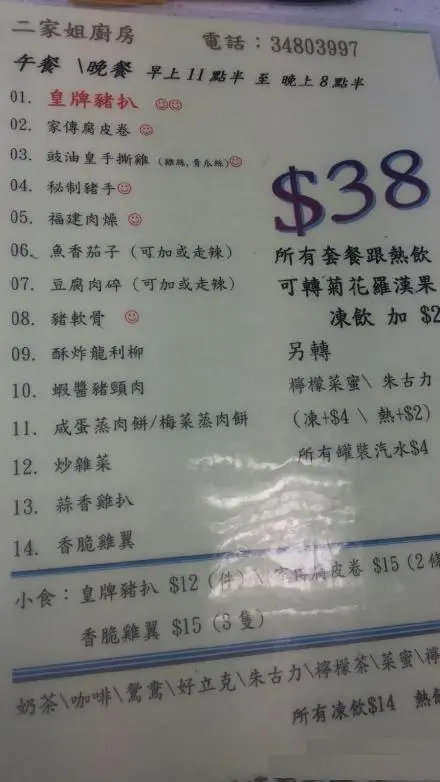 二家姐廚房
電話：34803997
午餐 \晚餐 早上 11 點半 至 晚上 8 點半
01. 皇牌豬扒
02. 家傳腐皮卷
03. 豉油皇手撕雞 (雞絲,青瓜絲)
04. 秘制豬手
05. 福建肉燥
06. 魚香茄子 (可加或走辣)
07. 豆腐肉碎 (可加或走辣)
08. 豬軟骨
09. 酥炸龍利柳
10. 蝦醬豬頸肉
11. 咸蛋蒸肉餅/梅菜蒸肉餅
12. 炒雜菜
13. 蒜香雞扒
14. 香脆雞翼
$38
所有套餐跟熱飲
可轉菊花羅漢果
凍飲 加 $2
另轉
檸檬菜蜜\ 朱古力
(凍+$4 \ 熱+$2)
所有罐裝汽水$4
小食：皇牌豬扒 $12 (件) \ 家傳腐皮卷 $15 (2 條
香脆雞翼 $15 (3 隻)
奶茶\咖啡\鴛鴦\好立克\朱古力\檸檬茶\菜蜜\檸
所有凍飲$14 熱飲